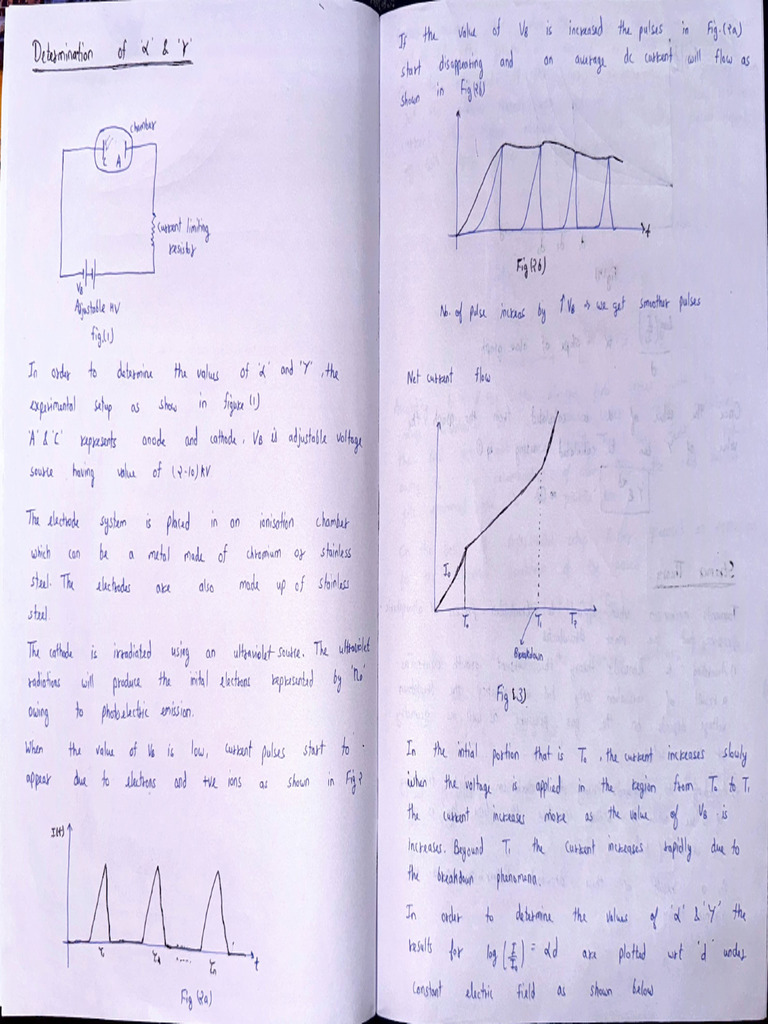 Determination of 'α' & 'γ'
chamber
C A
current limiting
resistor
V₀
Adjustable HV
fig(1)
In order to determine the values of 'α' and 'γ', the
experimental setup as show in figure (1)
'A' & 'C' represents anode and cathode, V₀ is adjustable voltage
source having value of (2-10) kV
The electrode system is placed in an ionisation chamber
which can be a metal made of chromium or stainless
steel. The electrodes are also made up of stainless
steel
The cathode is irradiated using an ultraviolet source. The ultraviolet
radiations will produce the inital electrons represented by 'n₀'
owing to photoelectric emission.
When the value of V₀ is low, current pulses start to
appear due to electrons and +ve ions as shown in Fig 2
I(t)
τ₁ τ₂ ..... τₙ t
Fig (2a)
If the value of V₀ is increased the pulses in Fig. (2a)
start disappearing and an average dc current will flow as
shown in Fig(2b)
t
Fig (2b)
No. of pulse increas by ↑ V₀ → we get smoother pulses
Net current flow
I₀
T₀ T₁ T₂
Breakdown
Fig (3)
In the intial portion that is T₀, the current increases slowly
when the voltage is applied in the region from T₀ to T₁
the current increases more as the value of V₀ is
increases. Beyound T₁ the current increases rapidly due to
the breakdown phenomena.
In order to determine the values of 'α' & 'γ' the
results for log (I/I₀) = αd are plotted wrt 'd' under
constant electric field as shown below